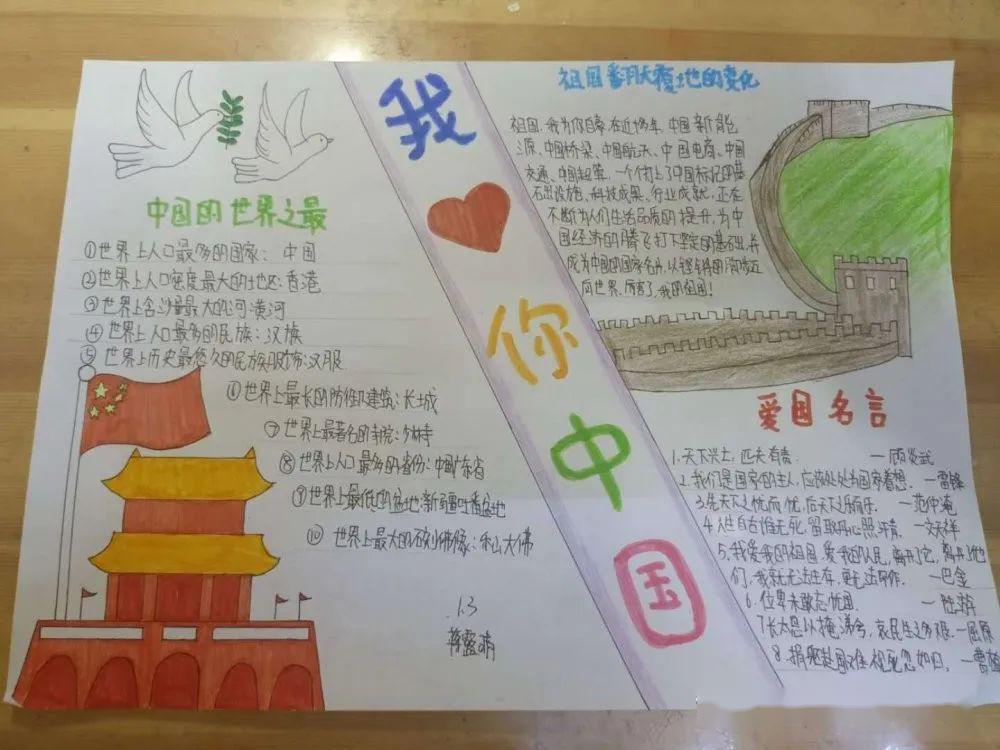 我
你
中
国
中国的世界之最
①世界上人口最多的国家：中国
②世界上人口密度最大的地区：香港
③世界含沙量最大的河：黄河
④世界上人口最多的民族：汉族
⑤世界历史最悠久的民族服饰：汉服
⑥世界上最长的防御建筑：长城
⑦世界上最著名的寺院：少林寺
⑧世界上人口最多的省份：中国广东省
⑨世界上最低的盆地：新疆吐鲁番盆地
⑩世界上最大的石刻佛像：乐山大佛
1.3
祖国翻天覆地的变化
祖国，我为你自豪，在近些年，中国新能
源、中国桥梁、中国航天、中国电商、中国
交通、中国超算，一个个打上了中国标记的基
石出设施、科技成果、行业成就，正在
不断为人们生活品质的提升，为中
国经济的腾飞打下坚定的基石出，并
成为中国的国家名片，以铿锵的
向世界，厉害了，我的祖国！
爱国名言
1.天下兴亡，匹夫有责。——顾炎武
2.我们是国家的主人，应该处处为国家着想。——雷锋
3.先天下之忧而忧，后天下之乐而乐。——范仲淹
4.人生自古谁无死，留取丹心照汗青。——文天祥
5.我爱我的祖国，爱我的人民，离开了它，离开了他
们，我就无法生存，更无法写作。——巴金
6.位卑未敢忘忧国。——陆游
7.长太息以掩涕兮，哀民生之多艰。——屈原
8.捐躯赴国难，视死忽如归。——曹植